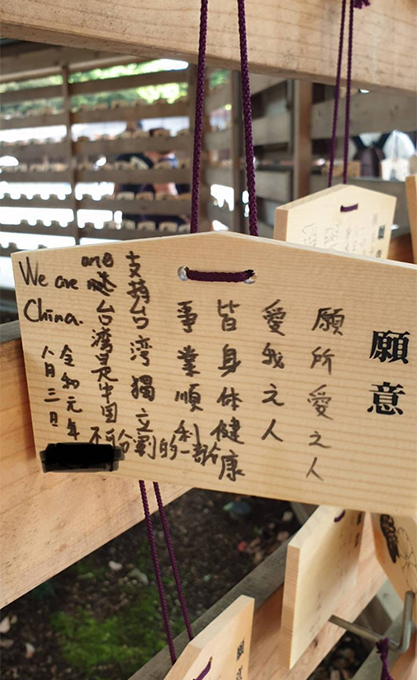 願意
願所愛之人
愛我之人
皆身体健康
事業順利
支持台湾獨立
We are one
China.
台湾是中国不可分割的一部分
令和元年
八月三日